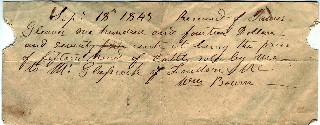 Sept 18th 1843 Received of James
Glascock one hundred and fourteen Dollars
and seventy cents it being the price
of fifteen head of Cattle sold by me
to Mr Glascock of Loudoun
Wm Bowen